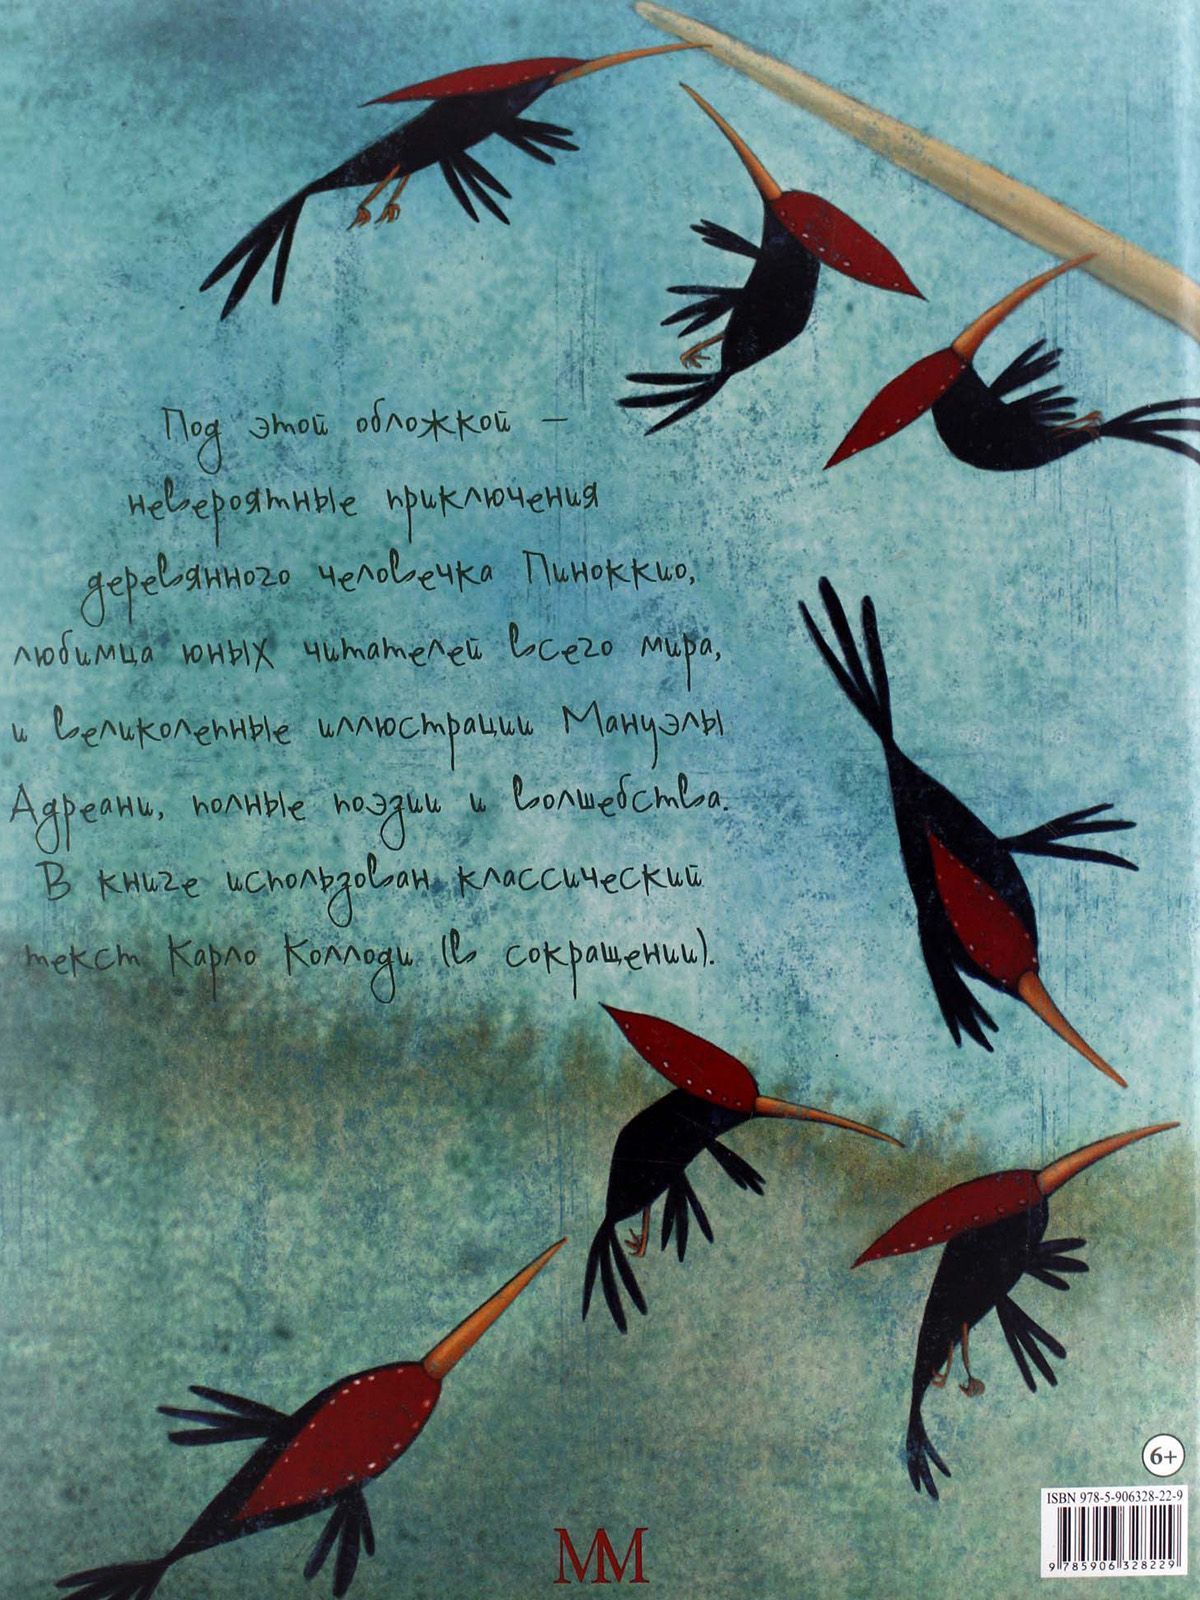 Под этой обложкой –
невероятные приключения
деревянного человечка Пиноккио,
любимца юных читателей всего мира,
и великолепные иллюстрации Мануэлы
Адреани, полные поэзии и волшебства.
В книге использован классический
текст Карло Коллоди (в сокращении).
6+
ISBN 978-5-906328-22-9
9 785906 328229
ММ